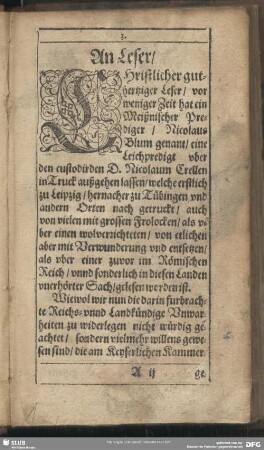 3.
An Leser/
CHristlicher gut-
hertziger Leser/ vor
weniger Zeit hat ein
Meißnischer Pre-
diger / Nicolaus
Blum genant/ eine
Leichpredigt vber
den custodirden D. Nicolaum Crellen
in Truck außgehen lassen/ welche erstlich
zu Leipzig/ hernacher zu Tübingen vnd
andern Orten nach getruckt/ auch
von vielen mit grossen Frolocken/ als v-
ber einen wolvernichteten/ von etlichen
aber mit Verwunderung vnd entsetzen/
als vber einer zuvor im Römischen
Reich/ vnnd sonderlich in diesen Landen
vnerhörter Sach/ gelesen worden ist.
Wiewol wir nun die darin fürbrach-
te Reichs- vnnd Landkündige Vnwar-
heiten zu widerlegen nicht würdig ge-
achtet/ sondern vielmehr willens gewe-
sen sind/ die am Keyserlichen Kammer
A ij ge-
SLUB
DFG